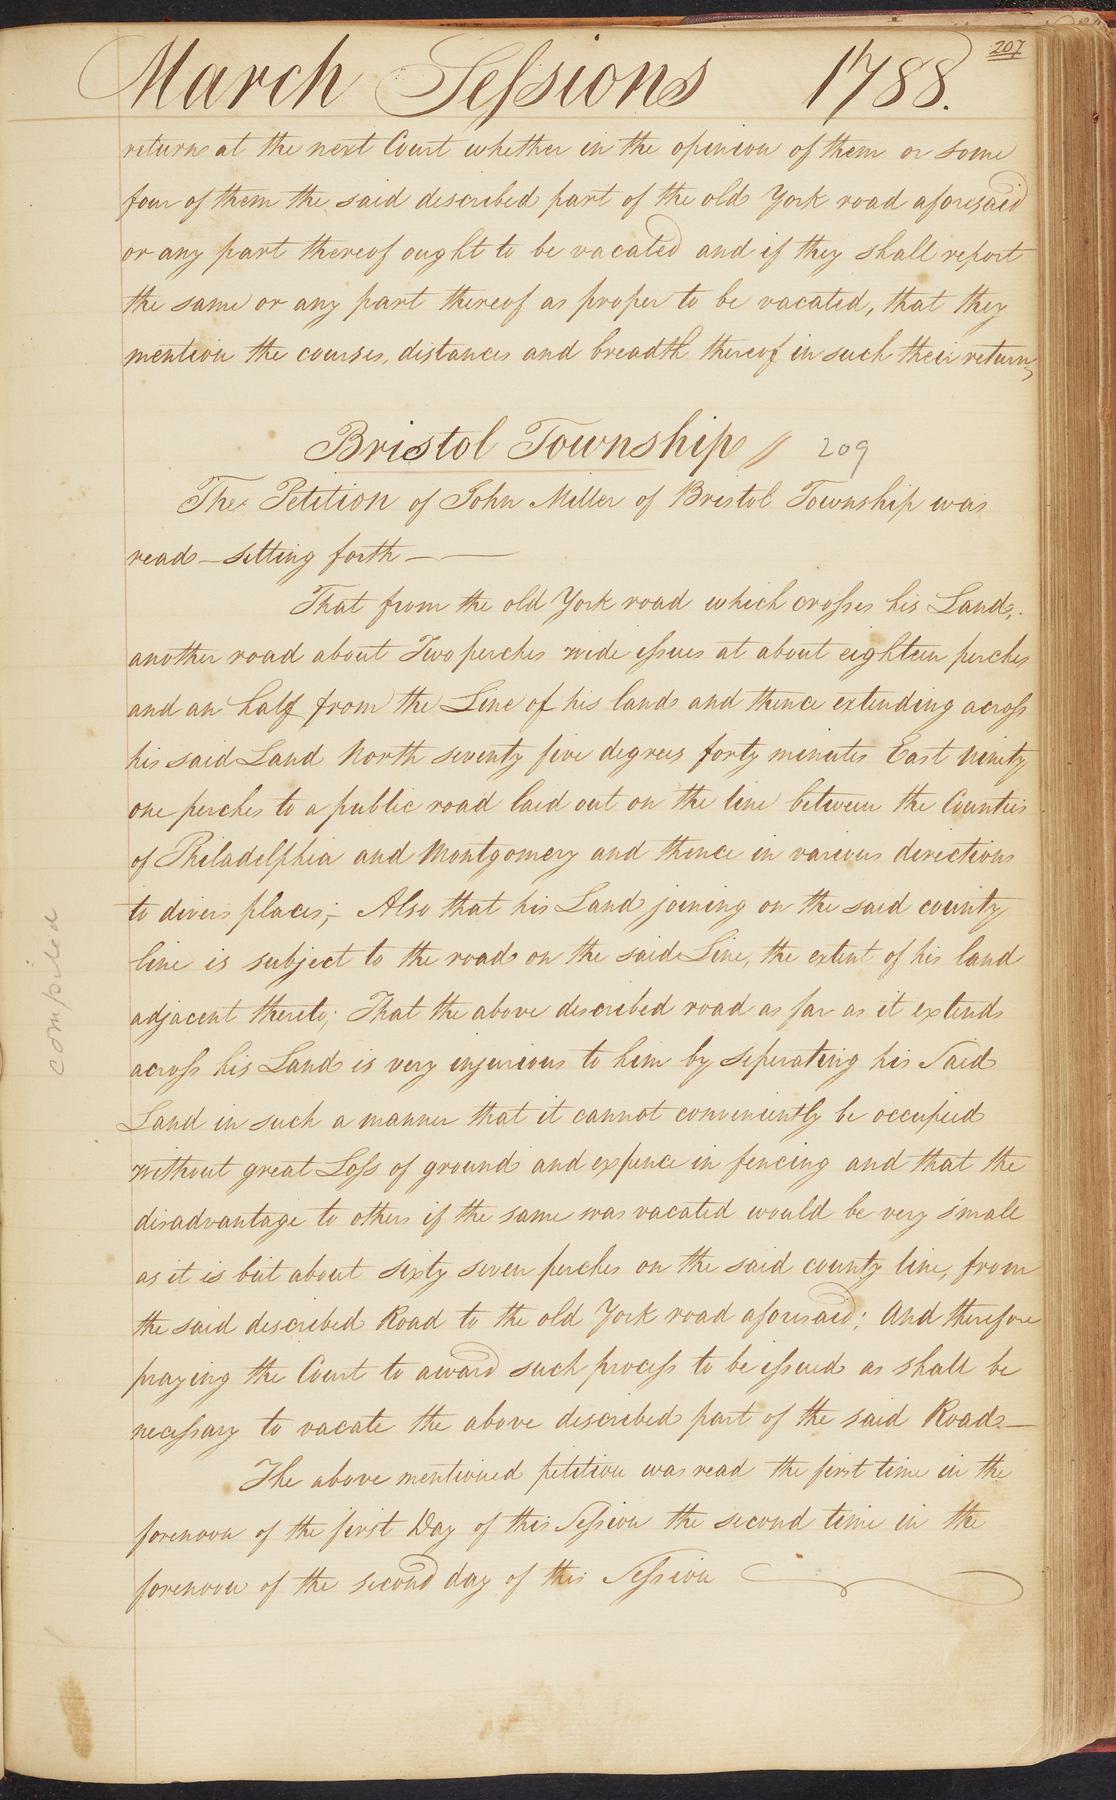 207
March Sessions 1788.
return at the next Court whether in the opinion of them or some
four of them the said described part of the old York road aforesaid
or any part thereof ought to be vacated and if they shall report
the same or any part thereof as proper to be vacated, that they
mention the courses, distances and breadth thereof in such their return,
Bristol Township // 209
The Petition of John Miller of Bristol Township was
read — setting forth — —
That from the old York road which crosses his Land,
another road about Two perches wide issues at about eighteen perches
and an half from the Line of his land and thence extending across
his said Land North seventy five degrees forty minutes East ninety
one perches to a public road laid out on the line between the Counties
of Philadelphia and Montgomery and thence in various directions
to divers places; Also that his Land joining on the said county
line is subject to the road on the said Line, the extent of his land
adjacent thereto; That the above described road as far as it extends
across his Land is very injurious to him by seperating his Said
Land in such a manner that it cannot conveniently be occupied
without great Loss of ground and expence in fencing and that the
disadvantage to others if the same was vacated would be very small
as it is but about sixty seven perches on the said county line, from
the said described Road to the old York road aforesaid; And therefore
praying the Court to award such process to be issued as shall be
necessary to vacate the above described part of the said Road —
The above mentioned petition was read the first time in the
forenoon of the first Day of this Session the second time in the
forenoon of the second day of this Session
compiled